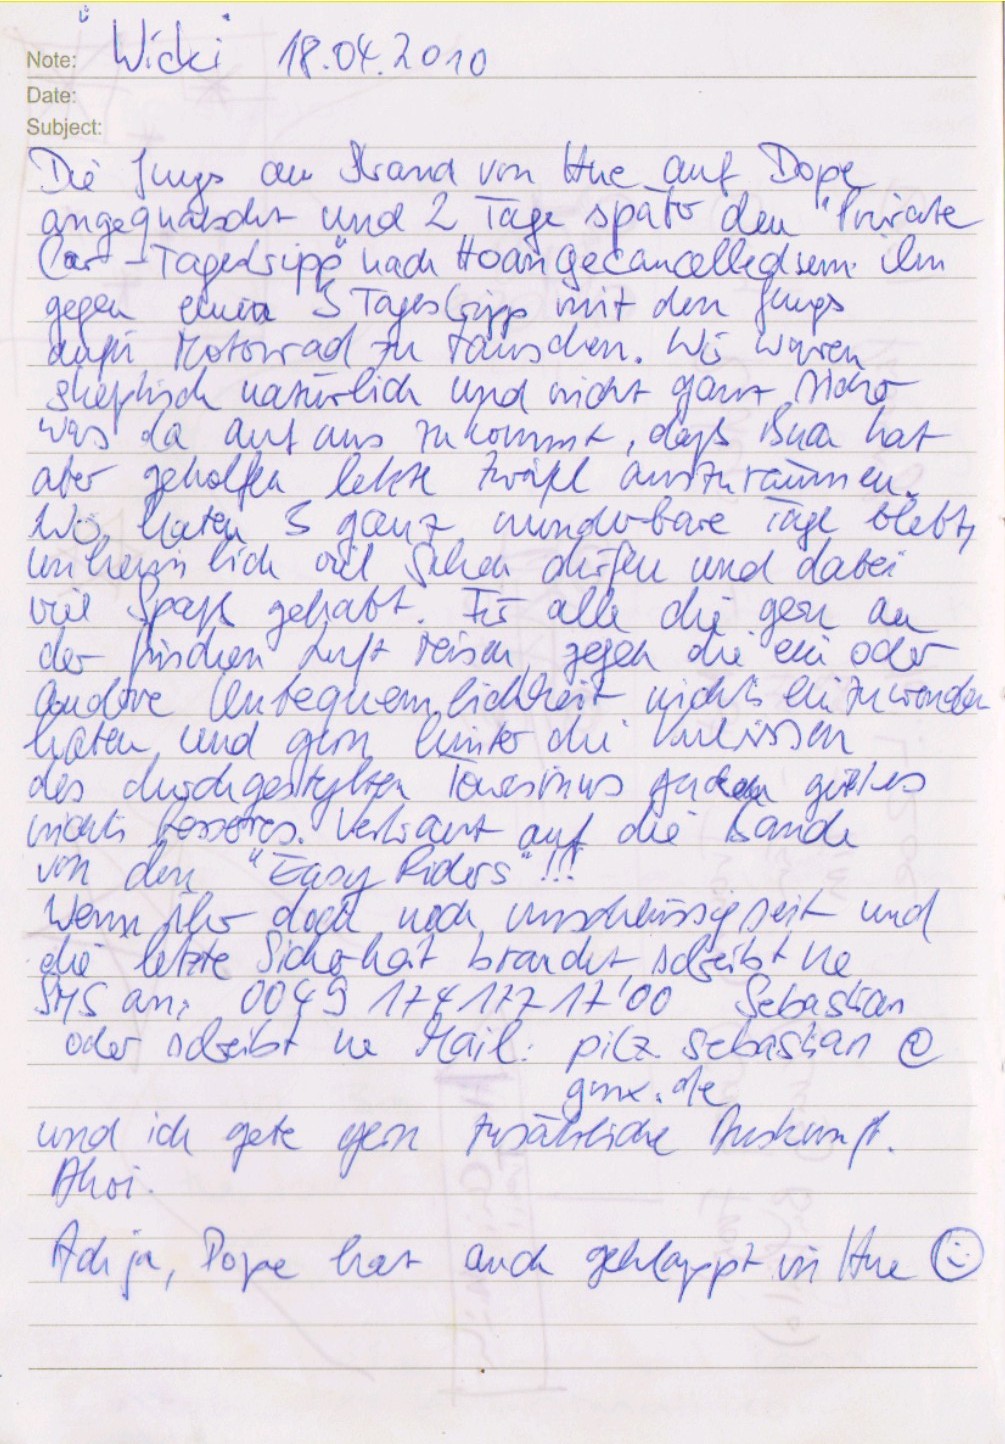 "Wicki" 18.04.2010
Note:
Date:
Subject:
Die Jungs am Strand von Hue auf Dope
angequatscht und 2 Tage später den "Private
Car-Tagestripp" nach Hoian gecancelled um ihn
gegen einen 5 Tagestripp mit den Jungs
aufm Motorrad zu tauschen. Wir waren
skeptisch natürlich und nicht ganz sicher
was da auf uns zukommt, dass Buch hat
aber geholfen letzte Zweifel auszuräumen.
Wir haben 5 ganz wunderbare Tage erlebt,
unheimlich viel sehen dürfen und dabei
viel Spaß gehabt. Für alle die gern an
der frischen Luft reisen, gegen die ein oder
andere Unbequemlichkeit nichts einzuwenden
haben, und gern hinter die Kulissen
des durchgestylten Tourismus gucken gibt es
nichts besseres. Vertraut auf die Bande
von den "Easy Riders"!!!
Wenn ihr doch noch unschlüssig seit und
die letzte Sicherheit braucht, schreibt ne
SMS an: 0049 174 177 17'00 Sebastian
oder schreibt ne Mail: pilz.sebastian @
gmx.de
und ich gebe gern zusätzliche Auskunft.
Ahoi.
Ach ja, Dope hat auch geklappt in Hue ☺